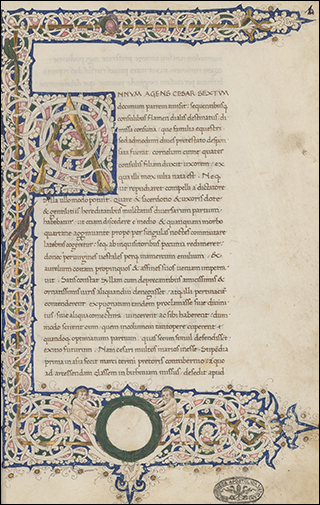 ANNVM AGENS CESAR SEXTVM
decimum patrem amisit : sequentibusq
consulibus flamen dialis destinatus : di
missa consutia : que familia equestri :
sed admodum diues pretextato despon
sata fuerat : corneliam cinne quater
consulis filiam duxit uxorem : ex
qua illi mox iulia nata est : Neq
ut repudiaret compelli a dictatore
Silla ullo modo potuit : Quare & sacerdotio & uxoris dote
& gentilitiis hereditatibus multatus diuersarum partium
habebatur : ut etiam discedere e medio & quamquam morbo
quartane aggrauante prope per singulas noctes commutare
latebras cogeretur : seq ab inquisitoribus pecunia redimeret :
donec per uirgines uestales perq mamercum emilium : &
aurelium cottam propinquos & affines suos ueniam impetra
uit : Satis constat Sillam cum deprecantibus amicissimis &
ornatissimis uiris aliquamdiu denegasset : atq illi pertinaciter
contenderent expugnatum tandem proclamasse siue diuini
tus : siue aliqua coniectura : uincerent ac sibi haberent : dum
modo scirent eum : quem incolumem tantopere cuperent :
quandoq optimatum partibus : quas secum simul defendissent
exitio futurum : Nam cesari multos marios inesse : Stipendia
prima in asia fecit marci termi pretoris contubernio : a quo
ad arcessendam classem in bithiniam missus : desedit apud